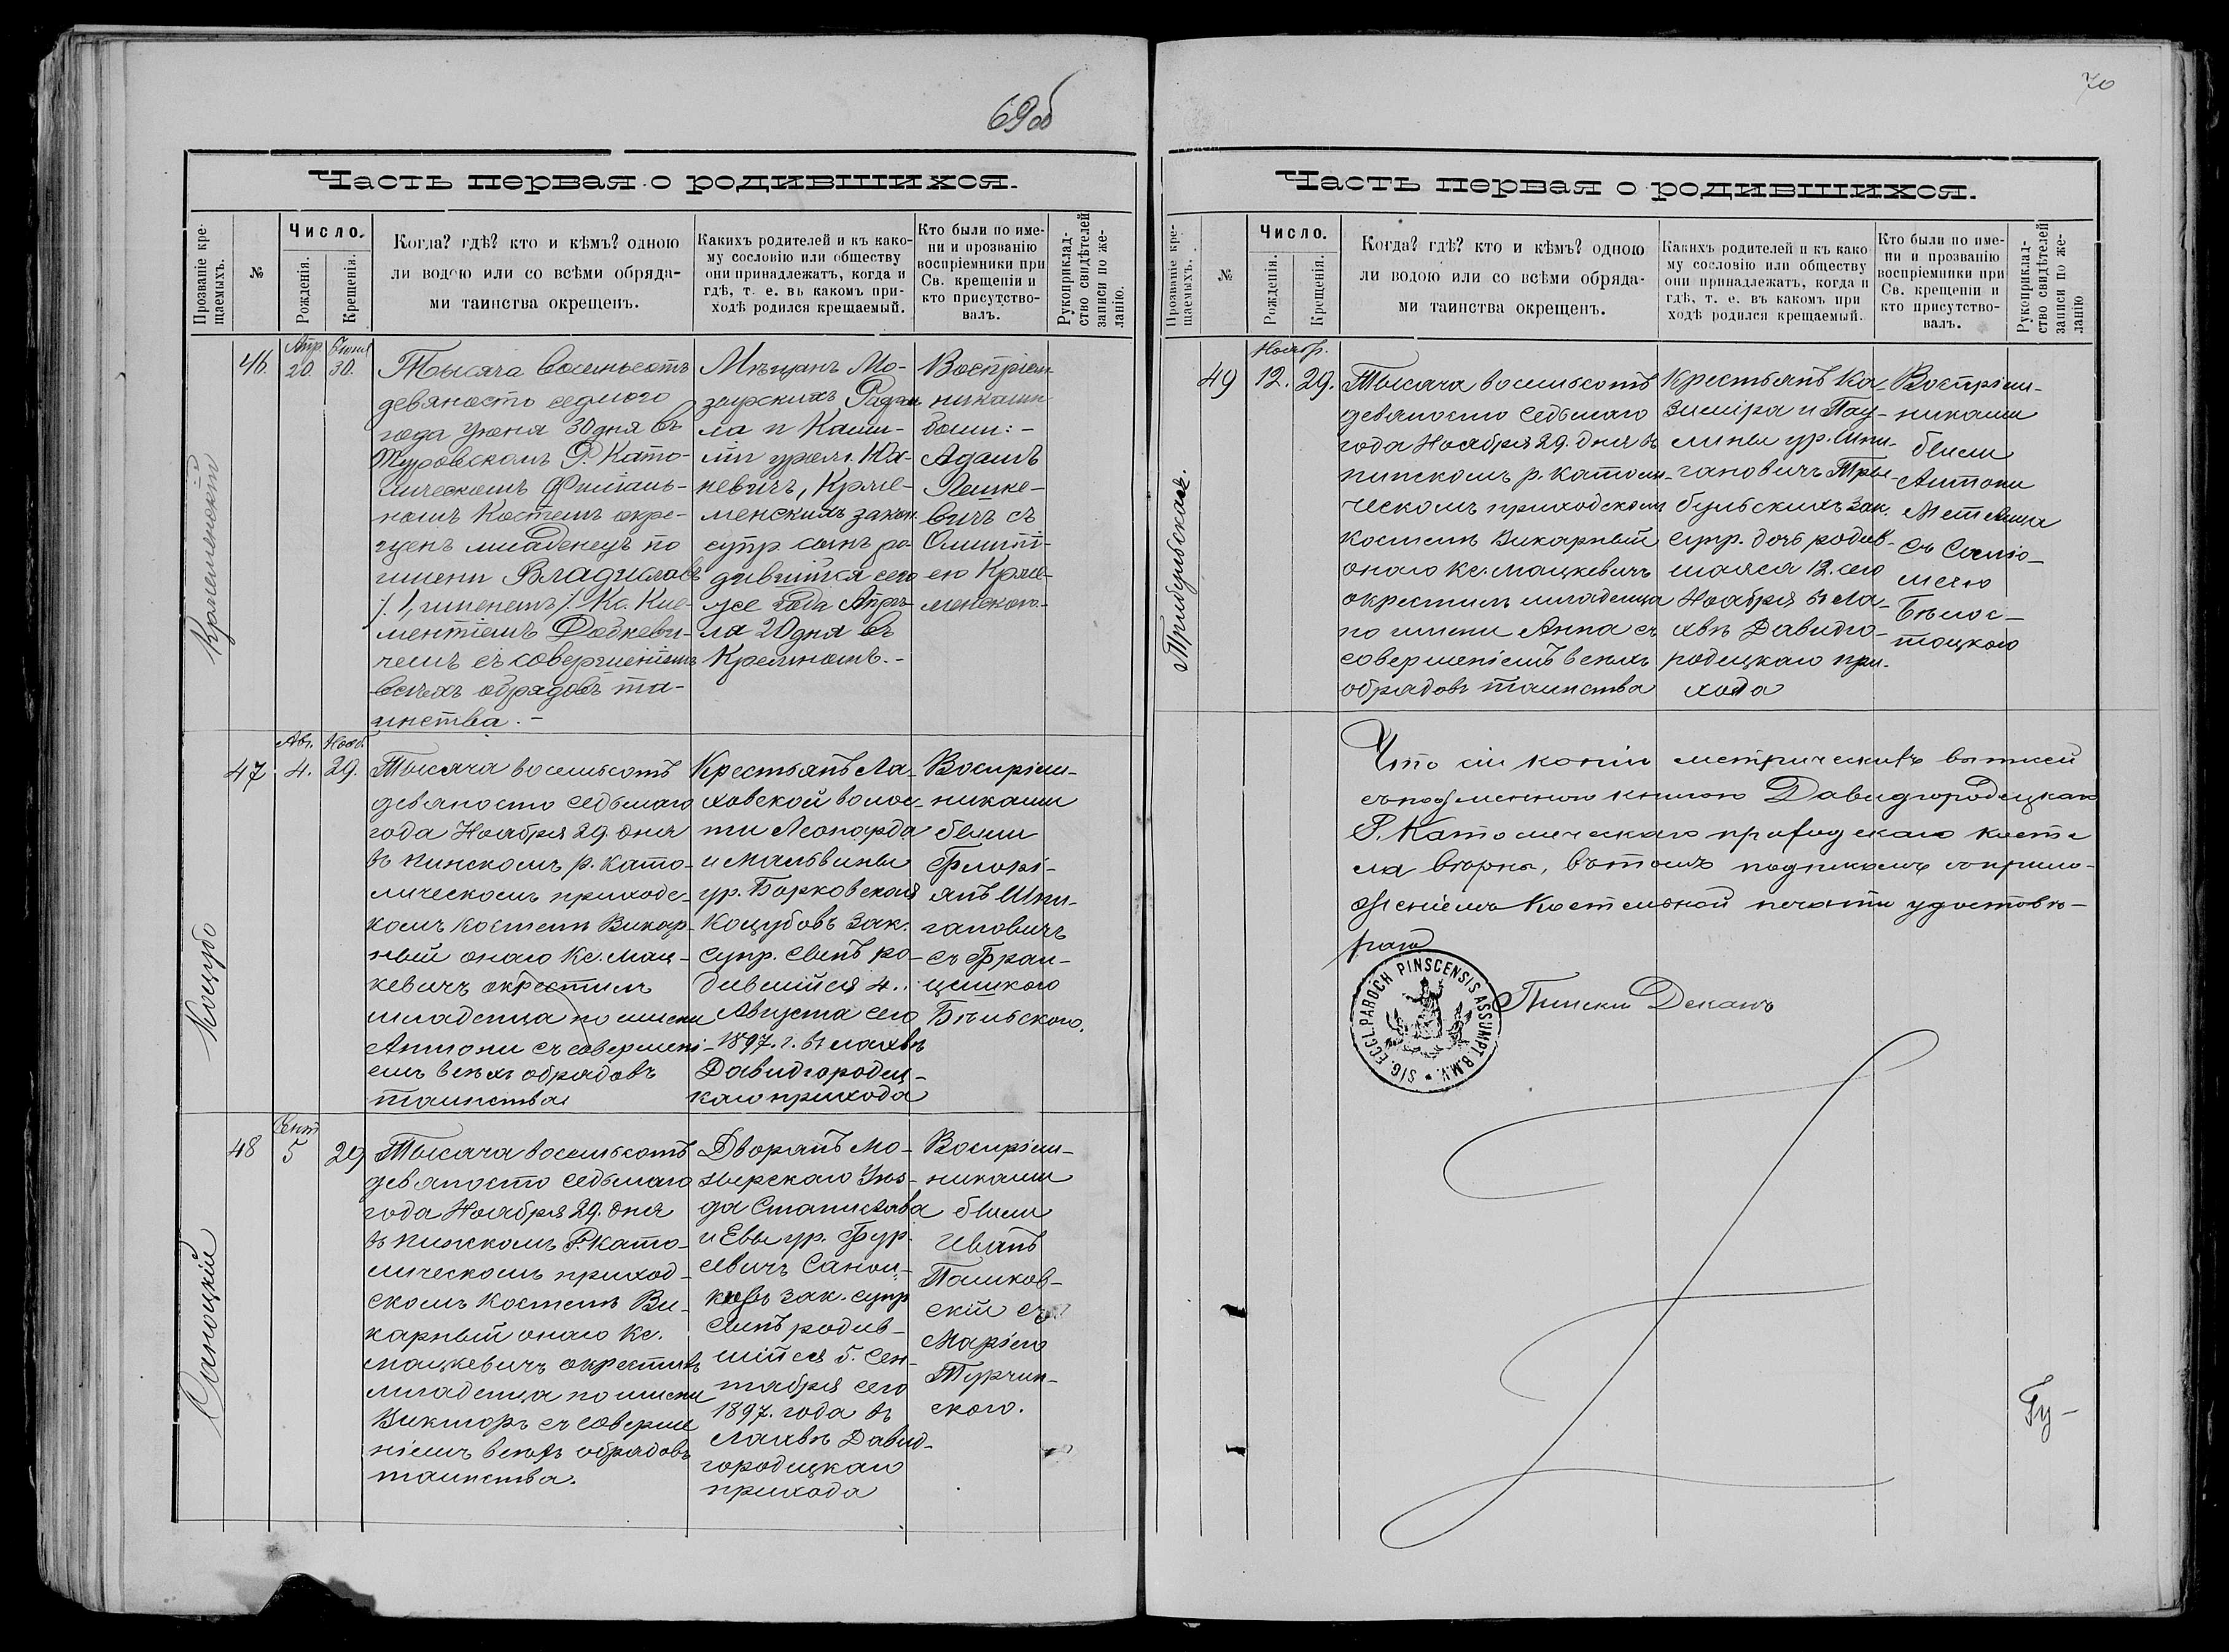 69об
Часть первая о родившихся.
Прозваніе кре-
щаемыхъ.
№
Число.
Рожденія.
Крещенія.
Когда? гдѣ? кто и кѣмъ? одною
ли водою или со всѣми обряда-
ми таинства окрещенъ.
Какихъ родителей и къ како-
му сословію или обществу
они принадлежатъ, когда и
гдѣ, т. е. въ какомъ при-
ходѣ родился крещаемый.
Кто были по име-
ни и прозванію
воспріемники при
Св. крещеніи и
кто присутство-
валъ.
Рукоприклад-
ство свидѣтелей
записи по же-
ланію.
46.
Апр.
20.
Іюня
30.
Тысяча восемьсотъ
девяносто седмого
года Іюня 30 дня въ
Туровскомъ Р. Като-
лическомъ Филіаль-
номъ Костелѣ окре-
щенъ младенецъ по
имени Владиславъ
/ 1, именемъ /. Кс. Кле-
ментіемъ
чемъ съ совершеніемъ
всѣхъ обрядовъ та-
инства. -
Мѣщанъ Мо-
зырскихъ
ла и Кази-
міи урож. Юх-
невичъ, Креме-
менскихъ закон.
супр. сынъ ро-
дившійся сего
же года Апрѣ-
ля 20 дня въ
Воспріем-
никами
были: -
Адамъ
вичъ съ
Олимпі-
ею Креме-
47.
Авг.
4.
Нояб.
29.
Коцубо
Тысяча восемьсотъ
девяносто седьмаго
года Ноября 29. дня
въ пинскомъ р. като-
лическомъ приходс-
комъ костелѣ Викар-
ный онаго Кс. Мац-
кевичъ окрестилъ
младенца по имени
Антони съ совершені-
емъ всѣхъ обрядовъ
таинства
Крестьянъ Ла-
ховской волос-
ти Леонарда
и Мальвины
ур. Борковской
Коцубовъ зак.
супр. сынъ ро-
дившійся 4.
Августа сего
1897. г. въ лахвѣ
Давидгородец-
каго прихода
Воспріем-
никами
были
Флорі-
янъ Шпи-
гановичъ
съ Фран-
цишкою
Бѣльскою.
48
Сент
5
29
Саноцкій
Тысяча восемьсотъ
девяносто седьмаго
года Ноября 29. дня
въ пинскомъ Р. като-
лическомъ приход-
скомъ костелѣ Ви-
карный онаго Кс.
Мацкевичъ окрестилъ
младенца по имени
Викторъ съ соверше
ніемъ всѣхъ обрядовъ
таинства.
Дворянъ Мо-
зырскаго Уѣз-
да Станислава
и Евы ур. Фур-
севичъ Саноц-
кихъ зак. супр
сынъ родив-
шійся 5. Сен-
тября сего
1897. года въ
Лахвѣ Давид-
городецкаго
прихода
Воспріем-
никами
были
Иванъ
скій съ
Маріею
Турчин-
скою.
70
Часть первая о родившихся.
Прозваніе кре-
щаемыхъ.
№
Число.
Рожденія.
Крещенія.
Когда? гдѣ? кто и кѣмъ? одною
ли водою или со всѣми обряда-
ми таинства окрещенъ.
Какихъ родителей и къ како
му сословію или обществу
они принадлежатъ, когда и
гдѣ, т. е. въ какомъ при
ходѣ родился крещаемый.
Кто были по име-
ни и прозванію
воспріемники при
Св. крещеніи и
кто присутство-
валъ.
Рукоприклад-
ство свидѣтелей
записи по же-
ланію
49
Ноябр.
12.
29.
Тысяча восемьсотъ
девяносто седьмаго
года Ноября 29. дня въ
пинскомъ р. католи-
ческомъ приходскомъ
костелѣ Викарный
онаго Кс. Мацкевичъ
окрестилъ младенца
по имени Анна съ
совершеніемъ всѣхъ
обрядовъ таинства
Крестьянъ Ка
зиміра и Пау-
лины ур. Шпи-
гановичъ При-
бульскихъ зак.
супр. дочь родив-
шаяся 12. сего
Ноября въ Ла-
хвѣ Давидго-
родецкаго при-
хода
Воспріем-
никами
были
Антони
съ Сало-
меею
Бѣлос-
тоцкою
Что сіи копіи метрическихъ
съ подлинною книгою Давидгородецкаго
Р. Католическаго приходскаго косте
ла вѣрны, въ томъ подписомъ съ прило-
женіемъ Костельной печати удостовѣ-
ряю
SIG. ECCL. PAROCH PINSCENSIS ASSUMPT. B.M.V.
Пински Деканъ